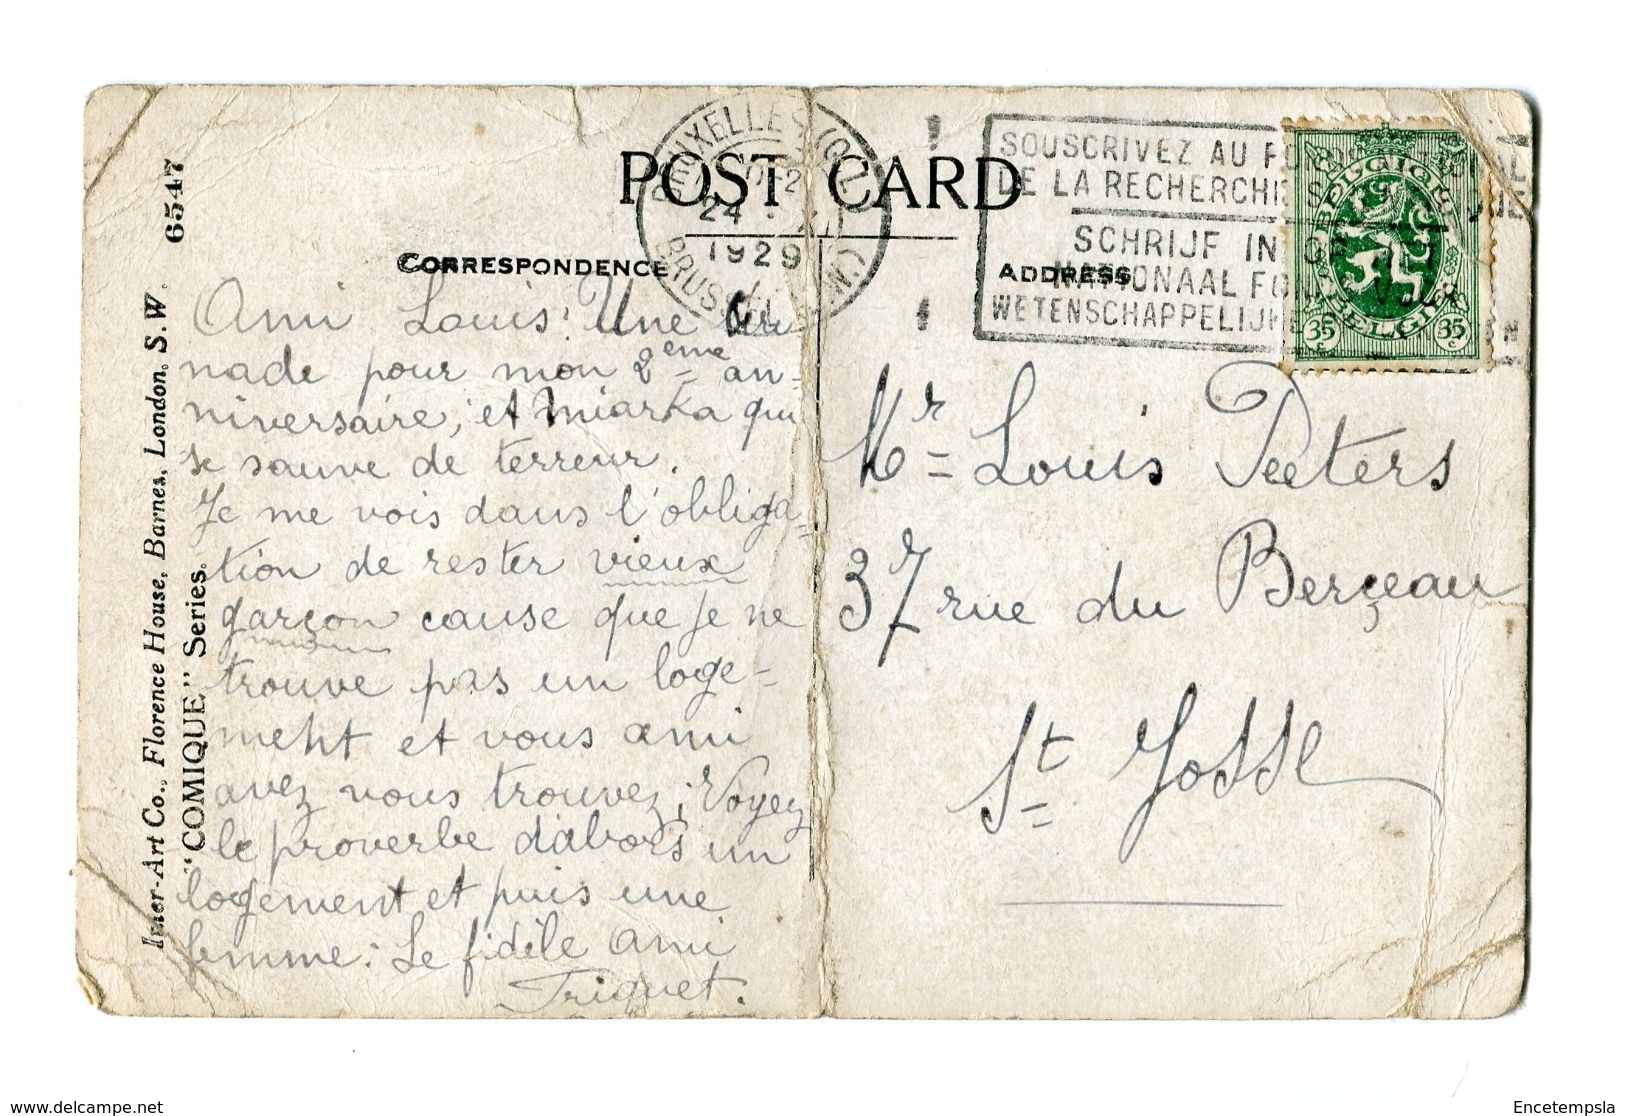 POST CARD
CORRESPONDENCE
ADDRESS
BRUXELLES (Q.L.)
24
1929
BRUSSEL
SOUSCRIVEZ AU
DE LA RECHERCHE
SCHRIJF IN
NATIONAAL
WETENSCHAPPELIJK
BELGIQUE
BELGIË
35 c 35 c
6547
Inter-Art Co., Florence House, Barnes, London, S.W.
"COMIQUE" Series.
Ami Louis! Une
nade pour mon 2ème an-
niversaire; et Miarka qui
se sauve de terreur.
Je me vois dans l'obliga=
tion de rester vieux
garçon cause que je ne
trouve pas un loge=
ment et vous ami
avez vous trouvez; Voyez
le proverbe d'abors un
logement et puis une
femme: Le fidèle ami
Triquet.
Mr = Louis Peeters
37 rue du Berçeau
St Josse
delcampe.net
Encetempsla